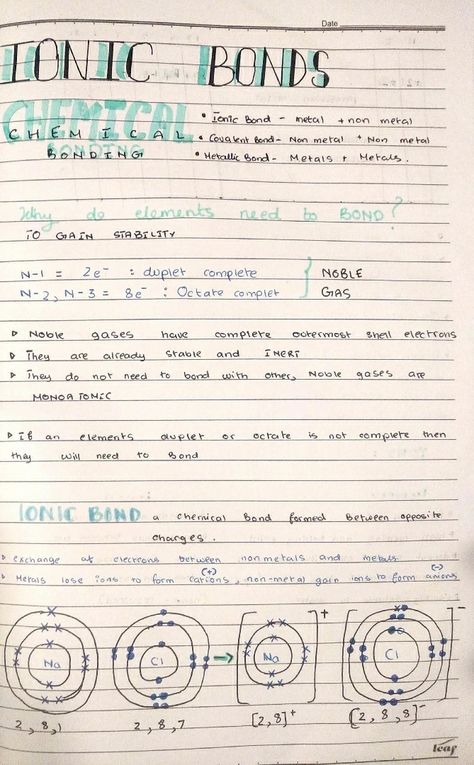 Date
IONIC BONDS
CHEMICAL
BONDING
CHEMICAL
BONDING
• Ionic Bond - metal + non metal
• Covalent Bond - Non metal + Non metal
• Metallic Bond - Metals + Metals.
Why do elements need to BOND?
TO GAIN STABILITY
N-1 = 2e⁻ : duplet complete
N-2, N-3 = 8e⁻ : Octate complet
} NOBLE
GAS
▹ Noble gases have complete outermost shell electrons
▹ They are already stable and INERT
▹ They do not need to bond with other, Noble gases are
MONOATOMIC
▹ If an elements duplet or octate is not complete then
they will need to Bond
IONIC BOND a chemical Bond formed Between opposite
charges.
▹ exchange of electrons between nonmetals and metals
▹ Metals lose ions to form cations, non-metal gain ions to form anions
(+) (-)
Na Cl → Na + Cl -
2, 8, 1 2, 8, 7 [2, 8]⁺ [2, 8, 8]⁻
leap